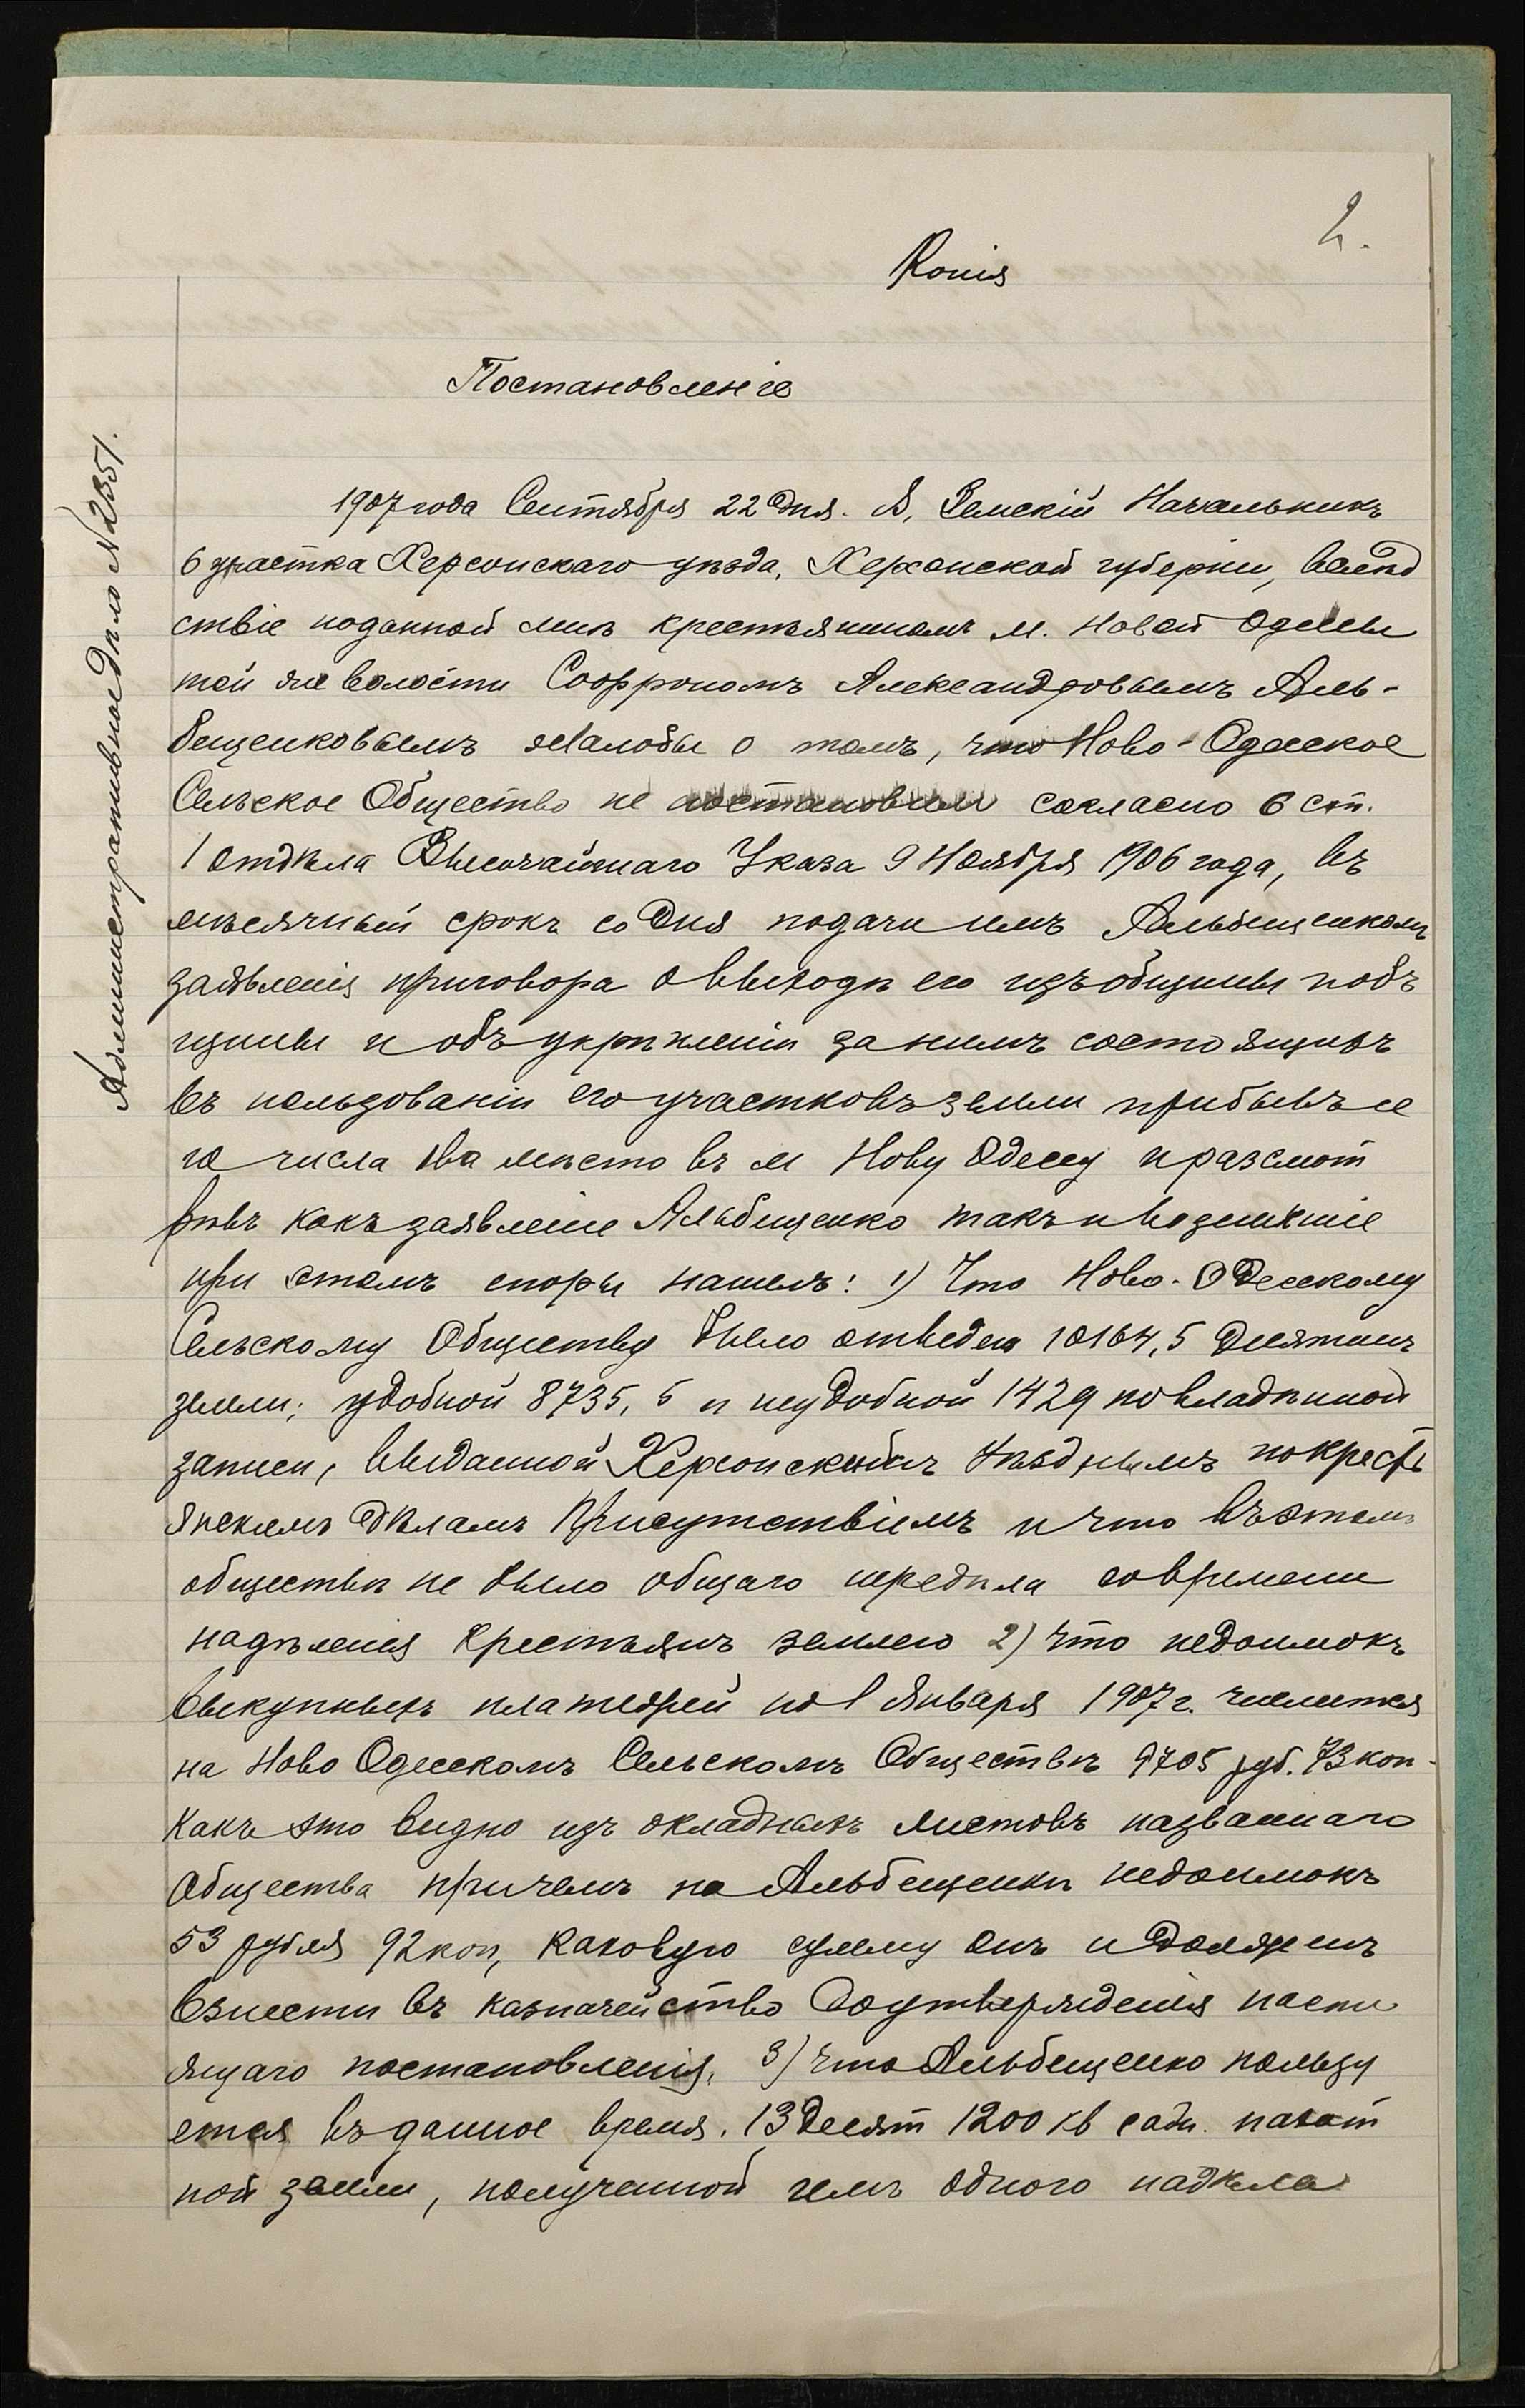 2.
Копія
Постановленіе
Административное Дѣло № 2351.
1907 года Сентября 22 дня. Я, Земскій Начальникъ
6 участка Херсонскаго уѣзда, Херсонской губерніи, вслѣд
ствіе поданной мнѣ крестьяниномъ м. Новой Одессы
той же волости Софрономъ Александровымъ Аль-
бещенковымъ жалобы о томъ, что Ново-Одесское
Сельское Общество не постановило согласно 6 ст.
1 отдѣла Высочайшаго Указа 9 Ноября 1906 года, въ
мѣсячный срокъ со дня подачи имъ Альбещенкомъ
заявленія приговора о выходѣ его изъ общины побъ
щины и объ укрѣпленіи за нимъ состоящихъ
въ пользованіи его участковъ земли прибывъ се
го числа на мѣсто въ м Нову Одессу и разсмот
рѣвъ какъ заявленіе Альбещенко такъ и возникшіе
при этомъ споры нашелъ: 1) Что Ново-Одесскому
Сельскому Обществу было отведено 10164,5 десятинъ
земли; удобной 8735,5 и неудобной 1429 по владѣнной
записи, выданной Херсонскимъ Уѣзднымъ по крестъ
янскимъ дѣламъ Присутствіемъ и что въ этомъ
обществѣ не было общаго передѣла со времени
надѣленія крестьянъ землею 2) что недоимокъ
выкупныхъ платежей по 1 Января 1907 г. числится
на Ново Одесскомъ Сельскомъ Обществѣ 9705 руб. 73 коп.
какъ это видно изъ окладныхъ листовъ названнаго
Общества причемъ на Альбещенки недоимокъ
53 рубля 92 коп, каковую сумму онъ и долженъ
взнести въ казначейство до утвержденія насто
ящаго постановленія, 3) что Альбещенко пользу
ется въ данное время. 13 десят 1200 кв саж. пахот
ной земли, полученной имъ одного надѣла